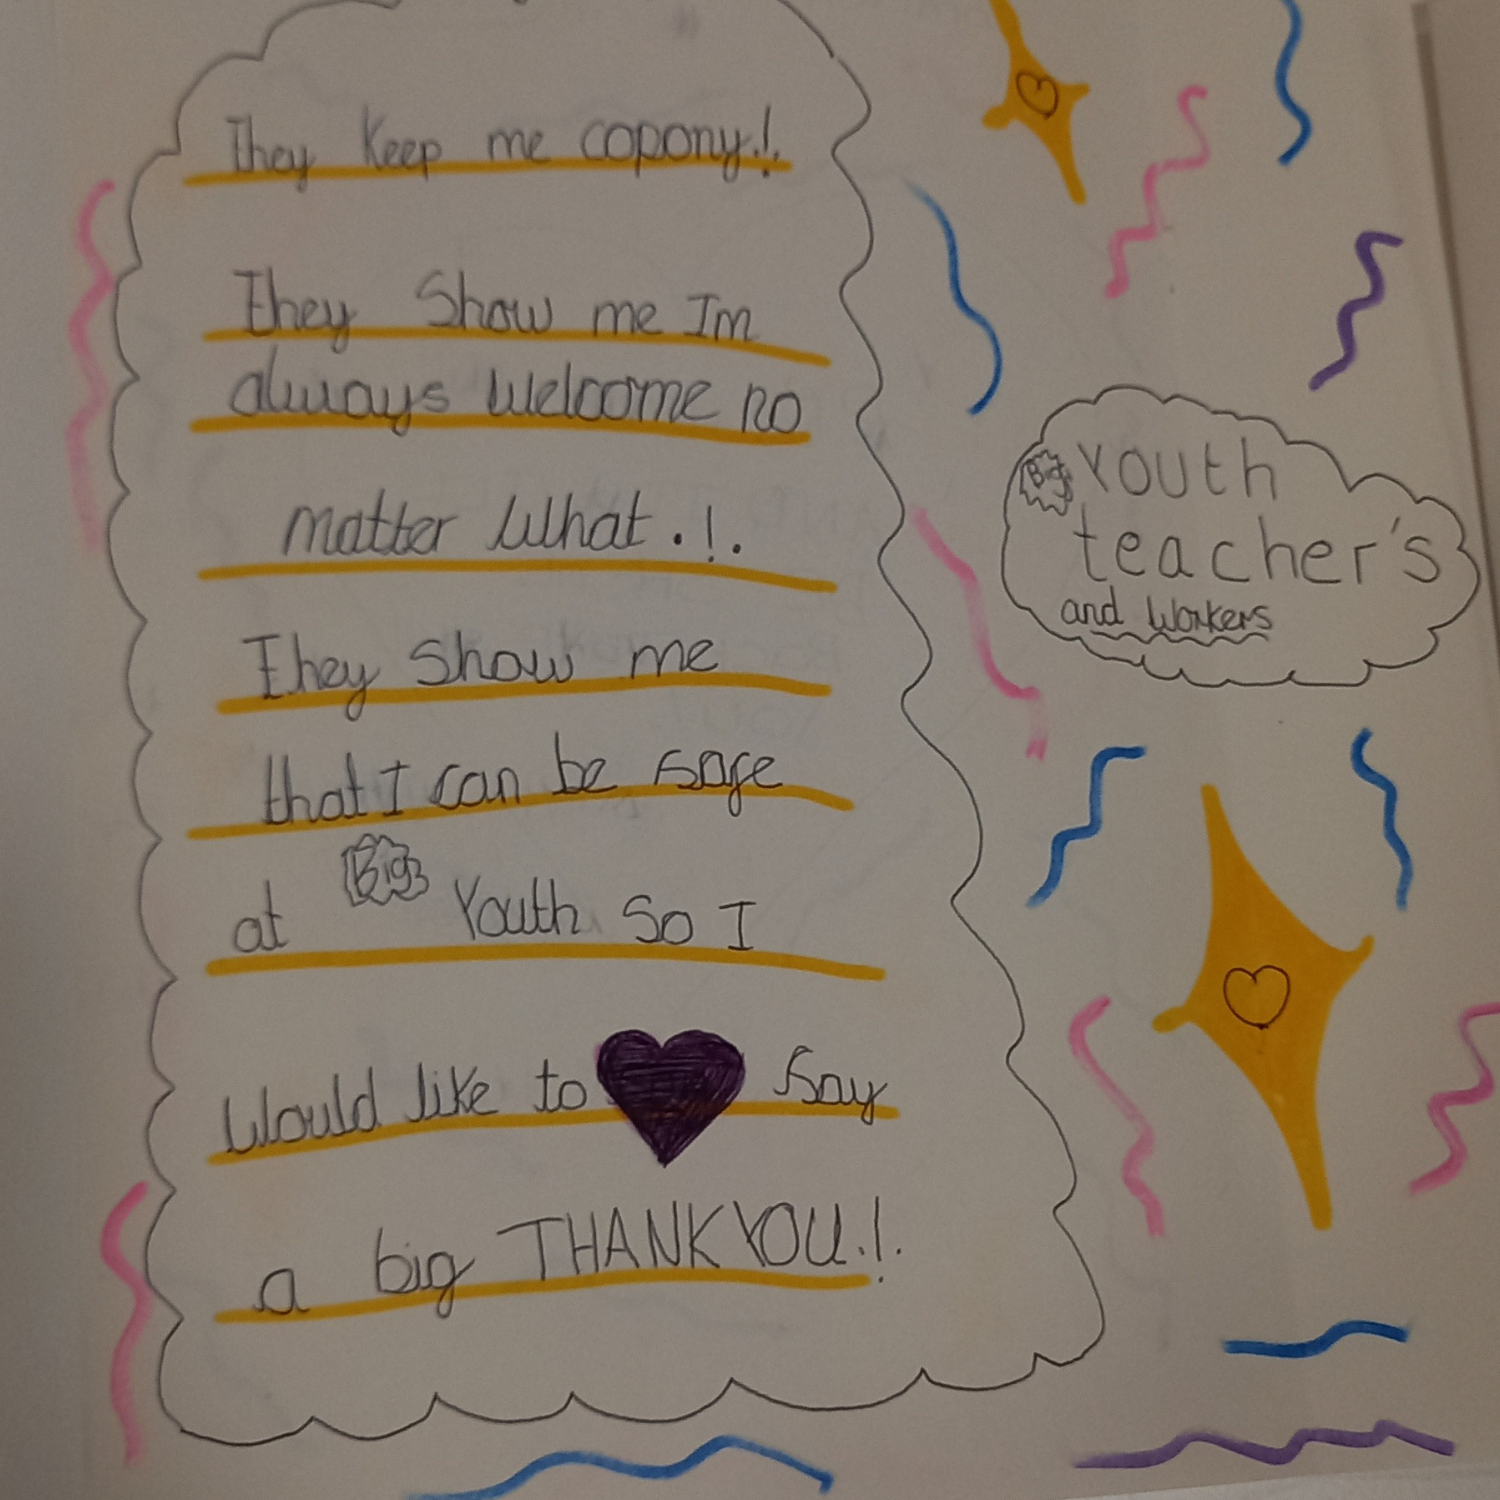 They Keep me copony.!.
They Show me Im
always Welcome no
matter What.!.
They Show me
that I can be safe
at Big Youth So I
Would like to Say
a big THANK YOU.!.
Big Youth
teacher's
and Workers